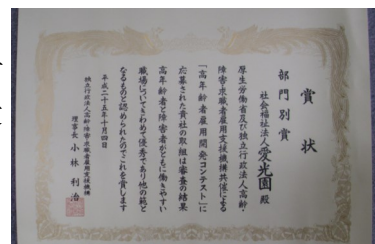 賞状
部門別賞
社会福祉法人愛光園 殿
厚生労働省及び独立行政法人高齢・
障害・求職者雇用支援機構共催による
「高年齢者雇用開発コンテスト」に
応募された貴社の取組は審査の結果
高年齢者と障害者がともに働きやすい
職場についてきわめて優秀であり他の範と
なるものと認められたのでこれを賞します
平成二十五年十月四日
独立行政法人高齢・障害・求職者雇用支援機構
理事長 小林利治